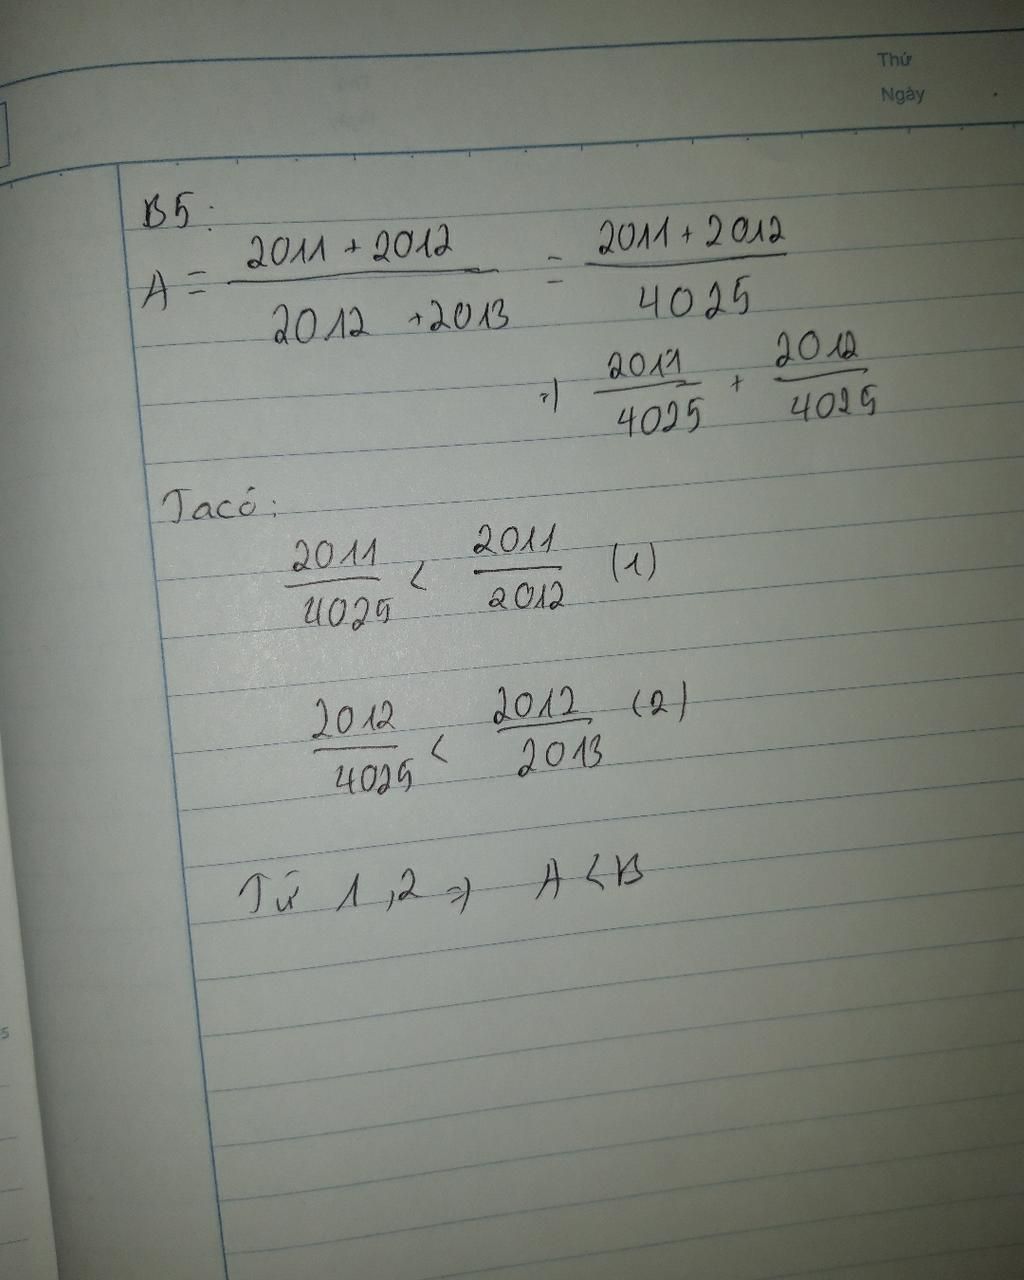 Thứ
Ngày
B5:
A = \frac{2011 + 2012}{2012 + 2013} = \frac{2011 + 2012}{4025}
=) \frac{2011}{4025} + \frac{2012}{4025}
Ta có:
\frac{2011}{4025} < \frac{2011}{2012} (1)
\frac{2012}{4025} < \frac{2012}{2013} (2)
Từ 1,2 =) A < B
5